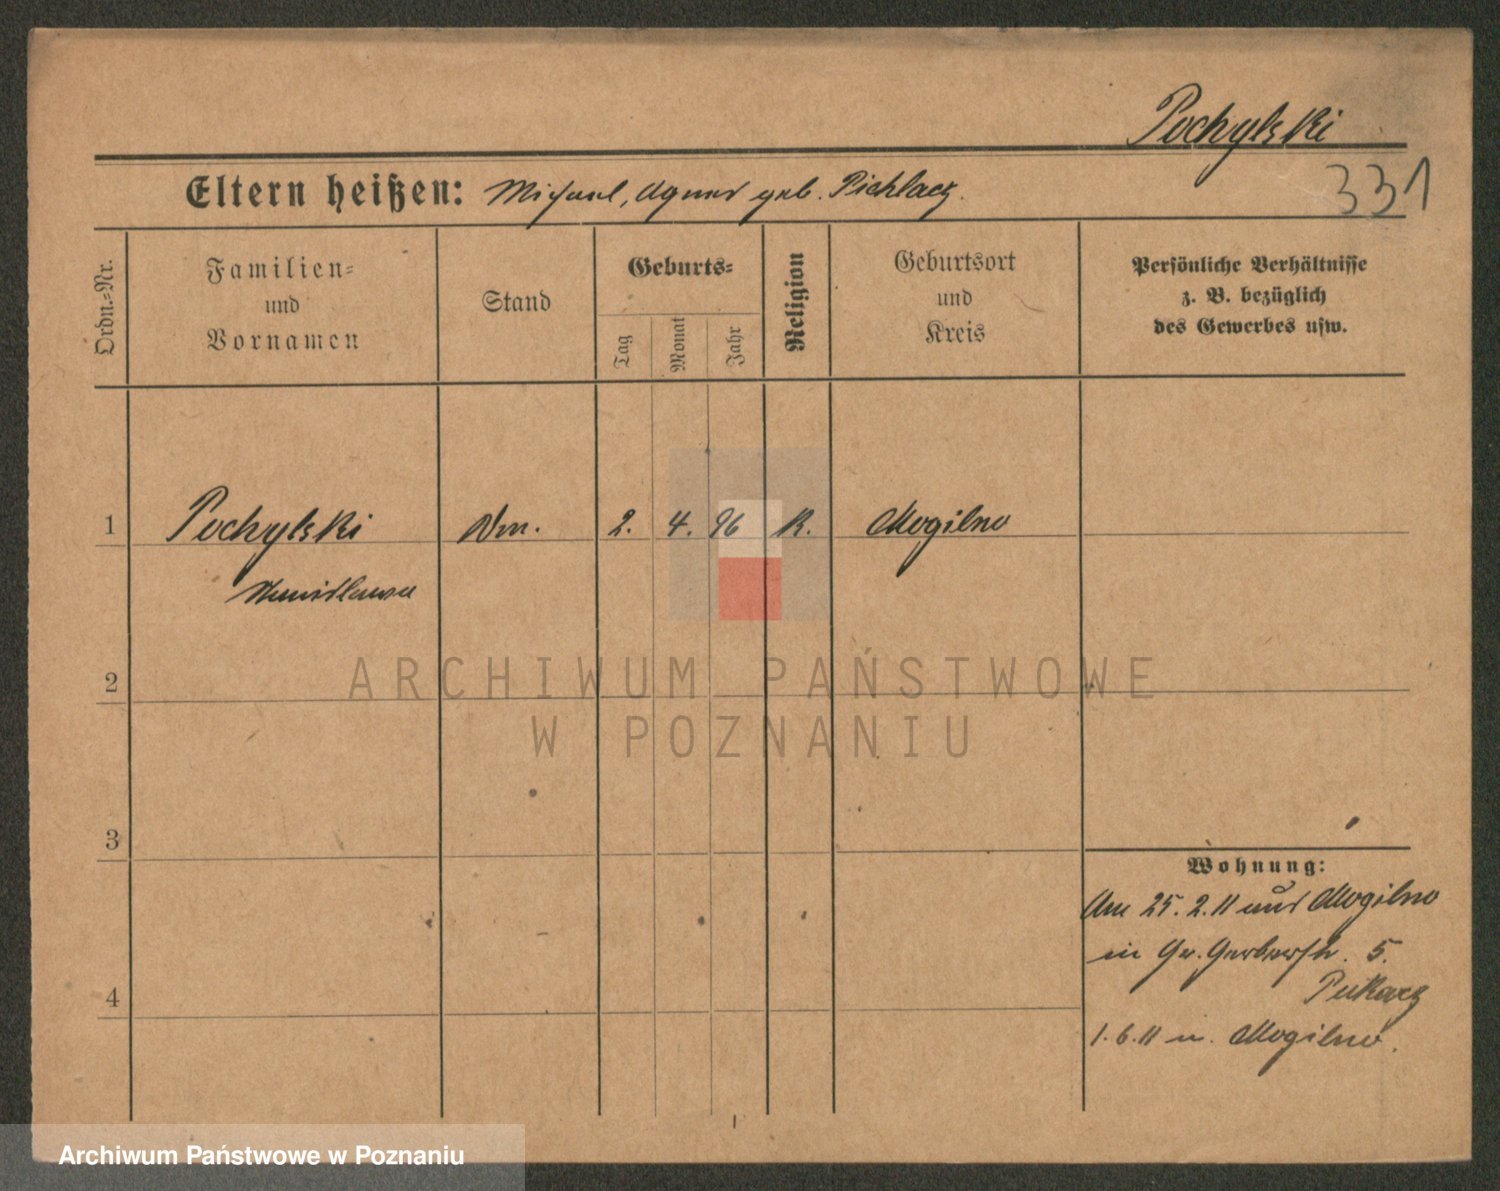 Pochylski
331
Eltern heißen: Michael, Agnes geb. Pichlacz.
Ordn.-Nr.
Familien- und Vornamen
Stand
Geburts-
Tag
Monat
Jahr
Religion
Geburtsort und Kreis
Persönliche Verhältnisse
z. B. bezüglich
des Gewerbes usw.
1 Pochylski 2. 4. 96 K. Mogilno
Stanislawa
2
3
4
Wohnung:
Am 25. 2. 11 aus Mogilno
in Gr. Gerberstr. 5.
Piekarz
1. 6. 11 n. Mogilno.
ARCHIWUM PAŃSTWOWE
W POZNANIU
Archiwum Państwowe w Poznaniu